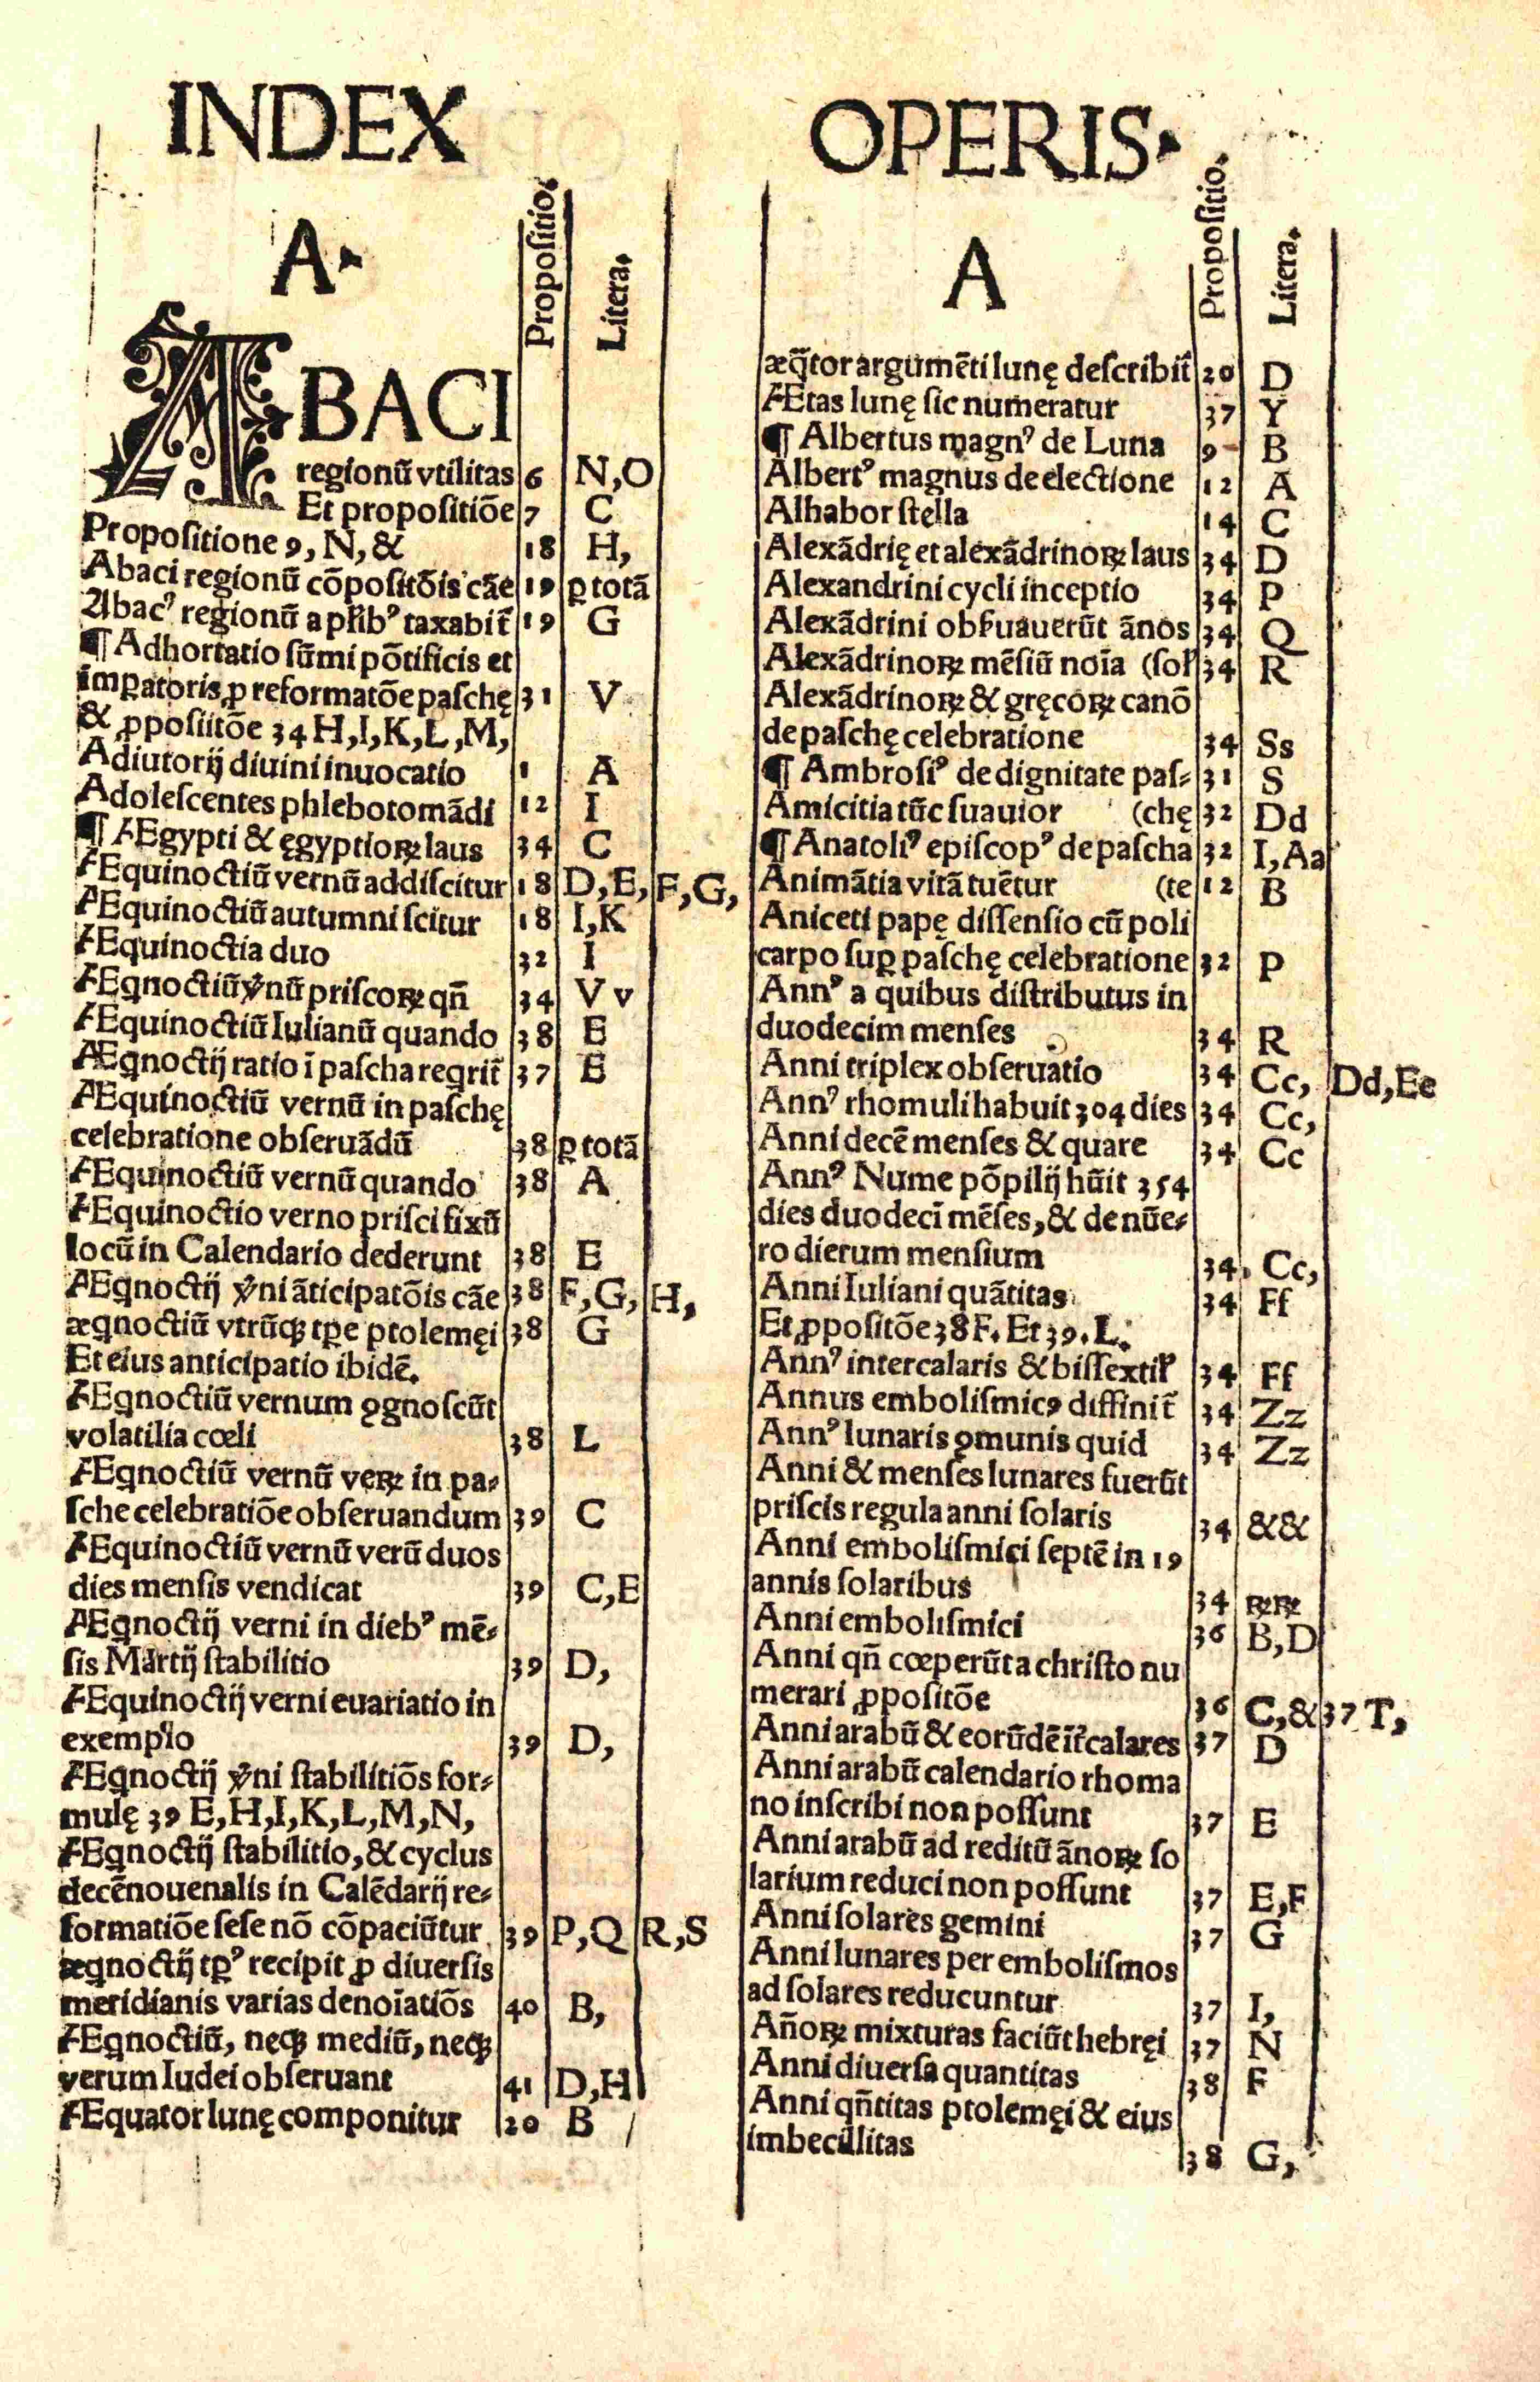 INDEX
A.
Propositio.
Litera.
ABACI
regionū vtilitas 6 N,O
Et propositiōe 7 C
Propositione 9, N, & 18 H,
Abaci regionū cōpositōis cāe 19 ꝑ totā
Abacꝰ regionū a pľibꝰ taxabit̃ 19 G
¶ Adhortatio sūmi pōtificis et
imꝑatoris ꝓ reformatōe paschę 31 V
& ꝓposiitōe 34 H,I,K,L,M,
Adiutorij diuini inuocatio 1 A
Adolescentes phlebotomādi 12 I
¶ AEgypti & ęgyptioꝝ laus 34 C
AEquinoctiū vernū addiscitur 18 D,E,F,G,
AEquinoctiū autumni scitur 18 I,K
AEquinoctia duo 32 I
AEqnoctiū v̓nū priscoꝝ qñ 34 V v
AEquinoctiū Iulianū quando 38 E
AEqnoctij ratio ī pascha reqrit̃ 37 E
AEquinoctiū vernū in paschę
celebratione obseruādū 38 ꝑ totā
AEquinoctiū vernū quando 38 A
AEquinoctio verno prisci fixū
locū in Calendario dederunt 38 E
AEqnoctij v̓ni āticipatōis cāe 38 F,G,H,
æqnoctiū vtrūqꝫ tꝑe ptolemęi 38 G
Et eius anticipatio ibidē.
AEqnoctiū vernum ꝯgnoscūt
volatilia cœli 38 L
AEqnoctiū vernū veꝝ in pa-
sche celebratiōe obseruandum 39 C
AEquinoctiū vernū verū duos
dies mensis vendicat 39 C,E
AEqnoctij verni in diebꝰ mē-
sis Martij stabilitio 39 D,
AEquinoctij verni euariatio in
exemplo 39 D,
AEqnoctij v̓ni stabilitiōs for-
mulę 39 E,H,I,K,L,M,N,
AEqnoctij stabilitio, & cyclus
decēnouenalis in Calēdarij re-
formatiōe sese nō cōpaciūtur 39 P,Q R,S
æqnoctij tꝑꝰ recipit ꝓ diuersis
meridianis varias denoīatiōs 40 B,
AEqnoctiū, neqꝫ mediū, neqꝫ
verum Iudei obseruant 41 D,H
AEquator lunę componitur 20 B
OPERIS.
A
Propositio.
Litera.
æq̄tor argumēti lunę describit̃ 20 D
AEtas lunę sic numeratur 37 Y
¶ Albertus magnꝰ de Luna 9 B
Albertꝰ magnus de electione 12 A
Alhabor stella 14 C
Alexādrię et alexādrinoꝝ laus 34 D
Alexandrini cycli inceptio 34 P
Alexādrini obẜuauerūt ānos 34 Q
Alexādrinoꝝ mēsiū noīa (soľ 34 R
Alexādrinoꝝ & gręcoꝝ canō
de paschę celebratione 34 Ss
¶ Ambrosiꝰ de dignitate pas- 31 S
Amicitia tūc suauior (chę 32 Dd
¶ Anatoliꝰ episcopꝰ de pascha 32 I,Aa
Animātia vitā tuētur (te 12 B
Aniceti papę dissensio cū poli
carpo suꝑ paschę celebratione 32 P
Annꝰ a quibus distributus in
duodecim menses 34 R
Anni triplex obseruatio 34 Cc, Dd,Ee
Annꝰ rhomuli habuit 304 dies 34 Cc,
Anni decē menses & quare 34 Cc
Annꝰ Nume pōpilij hūit 354
dies duodecī mēses, & de nūe-
ro dierum mensium 34. Cc,
Anni Iuliani quātitas 34 Ff
Et ꝓpositōe 38 F. Et 39. L.
Annꝰ intercalaris & bissextiľ 34 Ff
Annus embolismicꝰ diffinit̃ 34 Zz
Annꝰ lunaris ꝯmunis quid 34 Zz
Anni & menses lunares fuerūt
priscis regula anni solaris 34 &&
Anni embolismici septē in 19
annis solaribus 34 ꝝꝝ
Anni embolismici 36 B,D
Anni qñ cœperūt a christo nu
merari ꝓpositōe 36 C,& 37 T,
Anni arabū & eorūdē īt̓calares 37 D
Anni arabū calendario rhoma
no inscribi non possunt 37 E
Anni arabū ad reditū ānoꝝ so
larium reduci non possunt 37 E,F
Anni solares gemini 37 G
Anni lunares per embolismos
ad solares reducuntur 37 I,
Añoꝝ mixturas faciūt hebręi 37 N
Anni diuersa quantitas 38 F
Anni qñtitas ptolemęi & eius
imbecillitas 38 G,